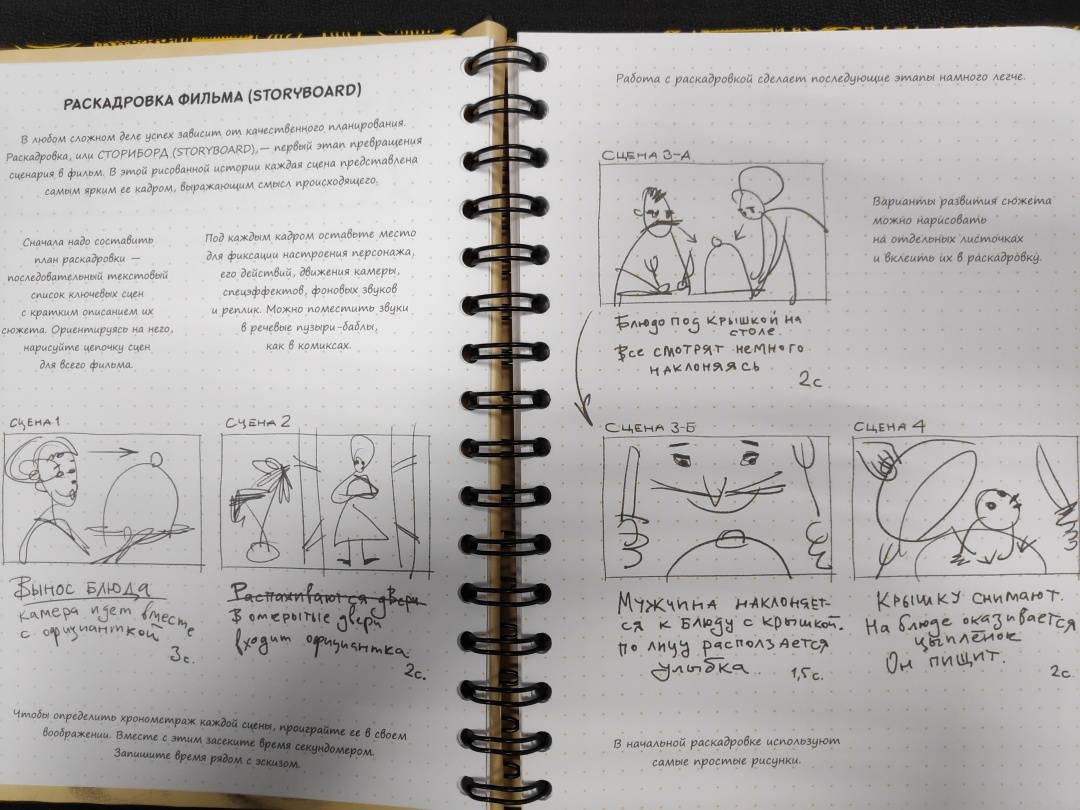 РАСКАДРОВКА ФИЛЬМА (STORYBOARD)
В любом сложном деле успех зависит от качественного планирования.
Раскадровка, или СТОРИБОРД (STORYBOARD), — первый этап превращения
сценария в фильм. В этой рисованной истории каждая сцена представлена
самым ярким ее кадром, выражающим смысл происходящего.
Сначала надо составить
план раскадровки —
последовательный текстовый
список ключевых сцен
с кратким описанием их
сюжета. Ориентируясь на него,
нарисуйте цепочку сцен
для всего фильма.
Под каждым кадром оставьте место
для фиксации настроения персонажа,
его действий, движения камеры,
спецэффектов, фоновых звуков
и реплик. Можно поместить звуки
в речевые пузыри-баблы,
как в комиксах.
СЦЕНА 1
Вынос блюда
камера идет вместе
с официанткой
3с.
СЦЕНА 2
Распахиваются двери
В открытые двери
входит официантка.
2с.
Чтобы определить хронометраж каждой сцены, проиграйте ее в своем
воображении. Вместе с этим засеките время секундомером.
Запишите время рядом с эскизом.
Работа с раскадровкой сделает последующие этапы намного легче.
СЦЕНА 3-А
Блюдо под крышкой на
столе.
Все смотрят немного
наклоняясь
2с
Варианты развития сюжета
можно нарисовать
на отдельных листочках
и вклеить их в раскадровку.
СЦЕНА 3-Б
Мужчина наклоняет-
ся к блюду с крышкой.
по лицу расползается
улыбка
1,5с.
СЦЕНА 4
Крышку снимают.
На блюде оказывается
цыпленок
Он пищит.
2с.
В начальной раскадровке используют
самые простые рисунки.